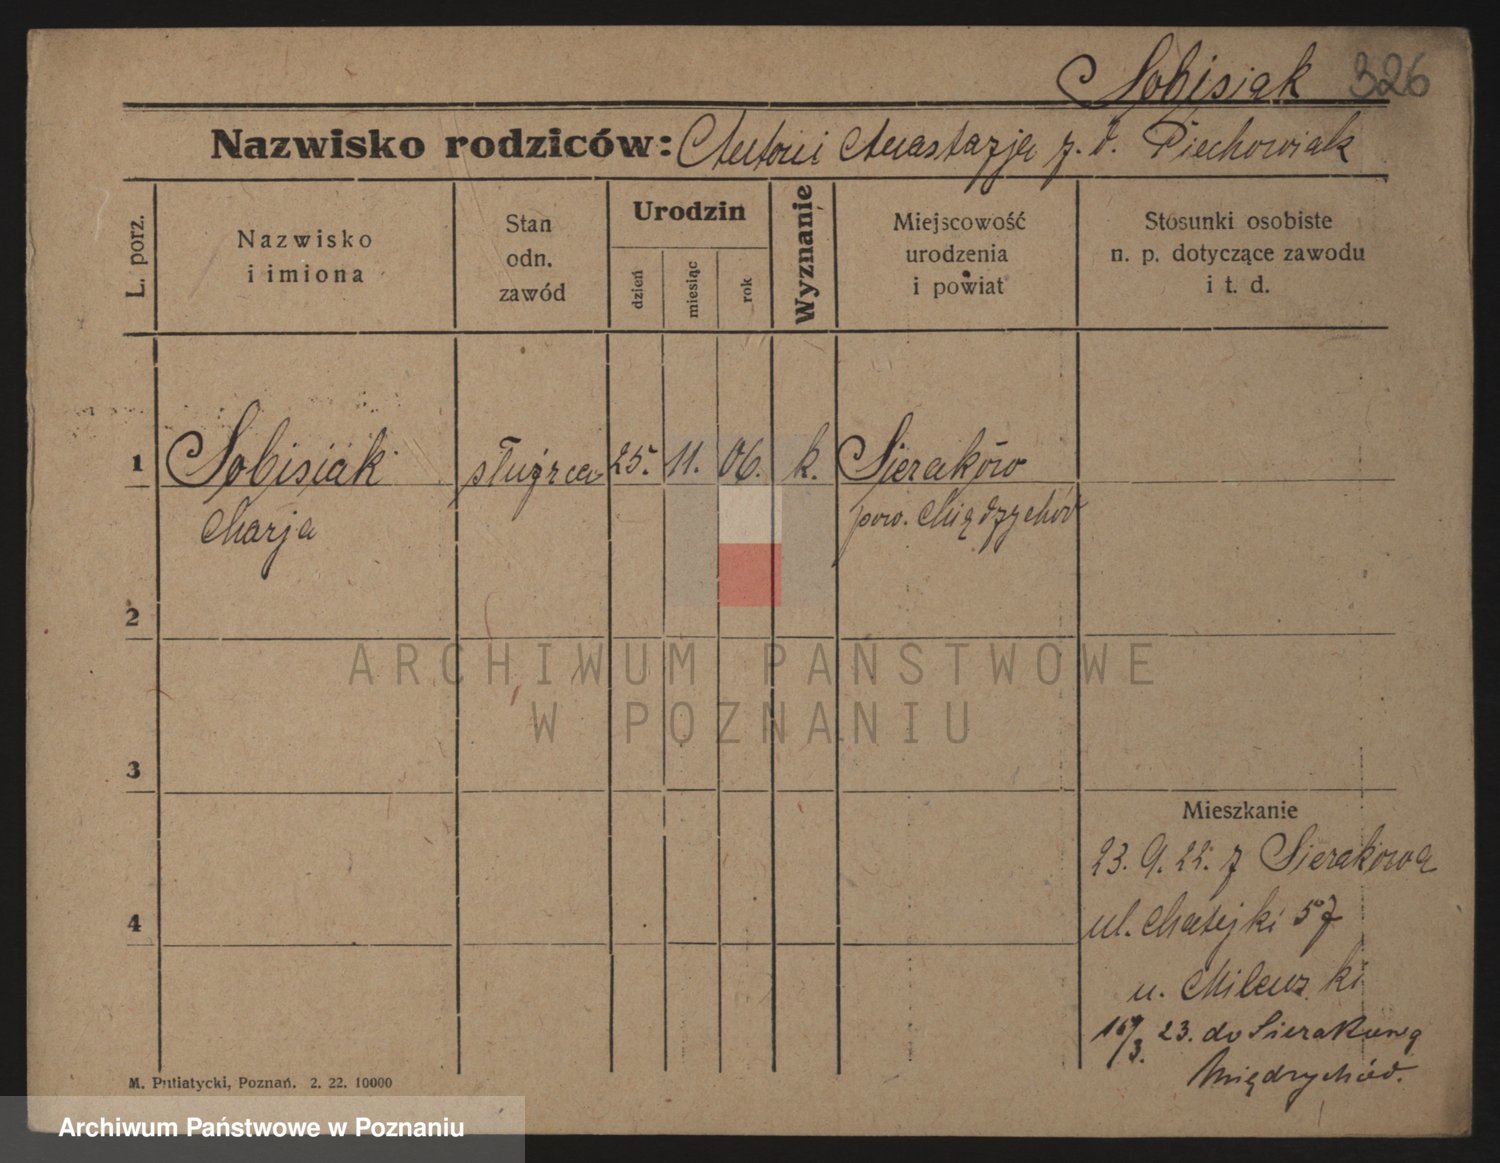 Sobisiak 326
Nazwisko rodziców: Antoni Anastazja z. d. Piechowiak
L. porz.
Nazwisko
i imiona
Stan
odn.
zawód
Urodzin
dzień
miesiąc
rok
Wyznanie
Miejscowość
urodzenia
i powiat
Stosunki osobiste
n. p. dotyczące zawodu
i t. d.
1 Sobisiak służąca 25. 11. 06. k. Sieraków
Marja pow. Międzychód
2
ARCHIWUM PAŃSTWOWE
W POZNANIU
3
Mieszkanie
23. 9. 22. z Sierakowa
4
ul. Matejki 57
u.
16/3. 23. do Sierakowa
Międzychód.
M. Putiatycki, Poznań. 2. 22. 10000
Archiwum Państwowe w Poznaniu